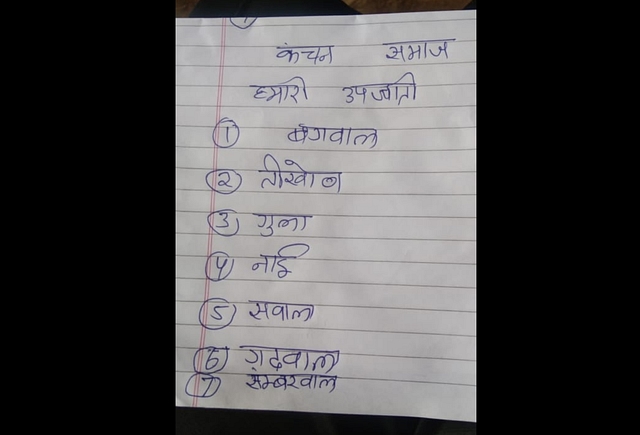 कंचन समाज
हमारी उपजाती
① बगवाल
② तीखोळ
③ गुला
④ नाई
⑤ सवाल
⑥ ग़दवाल
⑦ सम्बरवाल